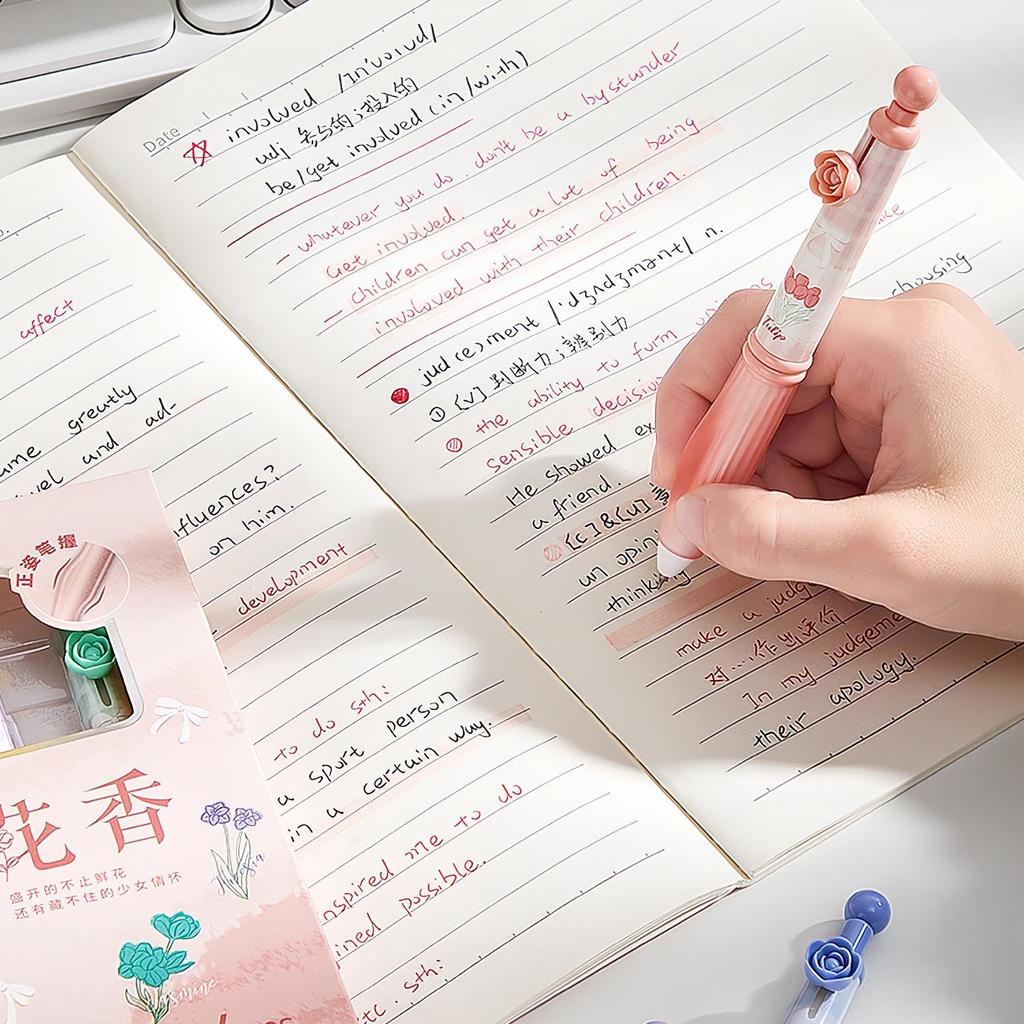 affect
greatly
and ad-
influences?
on him.
development
to do sth:
a sport person
in a certain way.
inspired me to do
possible.
etc. sth:
Date
involved /ɪn'vɔlvd/
adj 参与的;投入的
be/get involved (in/with)
whatever you do. don't be a bystander
Get involved.
children can get a lot of being
involoved with their children.
jud(e)ment /'dʒʌdʒmənt/ n.
① [V] 判断力;辨别力
the ability to form
sensible decisio
choosing
He showed ex
a friend.
[C]&[U]
an opini
thinking
make a judg
对...作出评价
In my judgeme
their apology.
Tulip
正姿笔握
花香
盛开的不止鲜花
还有藏不住的少女情怀
Jasmine